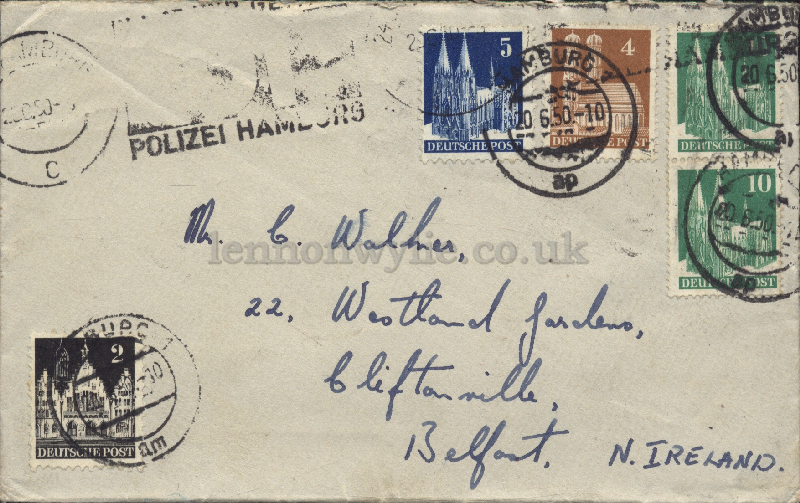 HAMBURG
C
POLIZEI HAMBURG
5
DEUTSCHE POST
4
DEUTSCHE POST
HAMBURG 1
20.6.50.-10
ap
HAMBURG
20.6.50
DEUTSCHE POST
10
DEUTSCHE POST
20.6.50
ap
Mr. C. Walker,
lennonwylie.co.uk
22, Westland Gardens,
Cliftonville,
Belfast, N. IRELAND.
BURG 1
2
DEUTSCHE POST